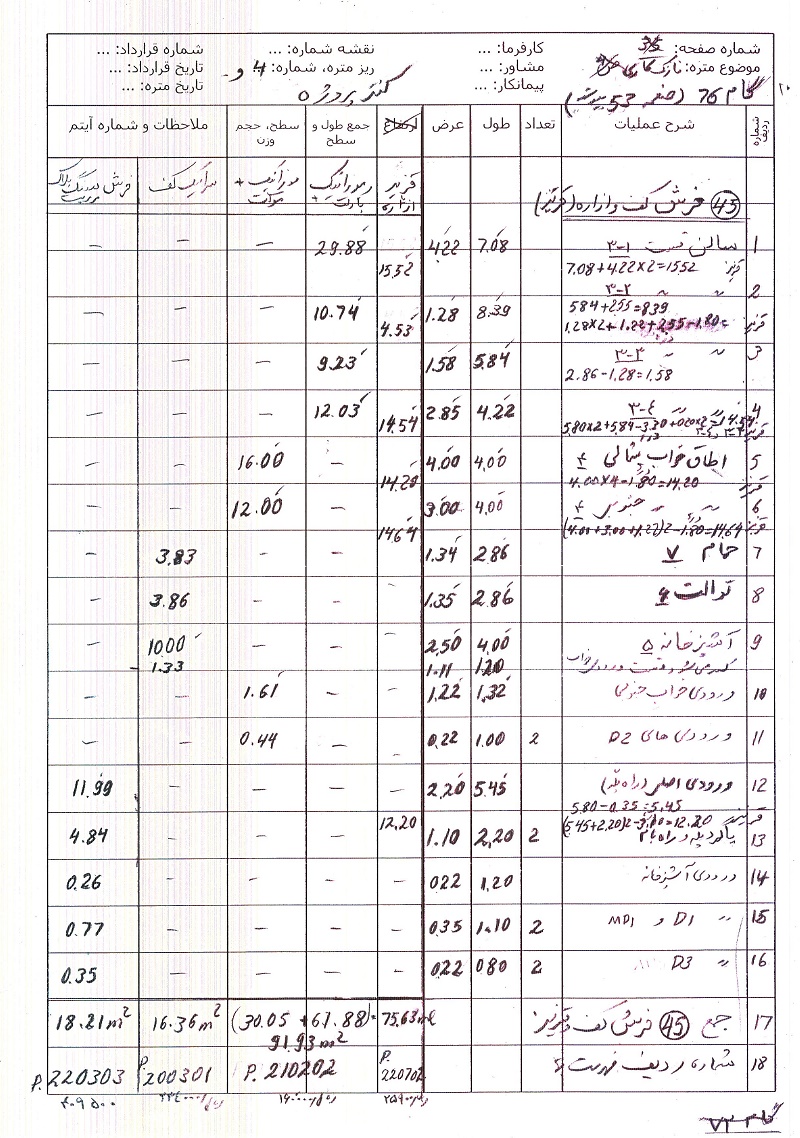 شماره صفحه: 3/5 کارفرما: ... نقشه شماره: ... شماره قرارداد: ...
موضوع متره: نازک کاری مشاور: ... ریز متره، شماره: 4 و تاریخ قرارداد: ...
گام 76 (صفحه 53 پیمانکار: ... کنتر پروژه 5 تاریخ متره: ...
شماره ردیف شرح عملیات تعداد طول عرض ارتفاع جمع طول و سطح سطح، حجم وزن ملاحظات و شماره آیتم
45 فرش کف و ازاره (قرنیز) قرنیز ازاره موزائیک + موکت سرامیک کف فرش سنگ پلاک
1 سالن قسمت ۱-۳ 7.08 4.22 29.88 — — —
قرنیز 7.08+4.22×2=1552 15.52
2 " " ۲-۳ 8.39 1.28 10.74 — — —
584+255=839
قرنیز 1.28×2+1.22+2.55-1.80= 4.53
3 " " ۳-۳ 5.84 1.58 9.23 — — —
2.86-1.28=1.58
4 " " ٤-۳ 4.22 2.85 12.03 — — —
قرنیز 5.80×2+5.84-3.30+020×2 14.54
5 اطاق خواب شمالی ۴ 4.00 4.00 — 16.00 — —
قرنیز 4.00×4-1.80=14.20 14.20
6 " " جنوبی ۴ 4.00 3.00 — 12.00 — —
قرنیز (4.00+3.00+1.22)2-1.80=14.64 1464
7 حمام ۷ 2.86 1.34 — — 3.83 —
8 توالت ۶ 2.86 1.35 — — 3.86 —
9 آشپزخانه ۵ 4.00 2.50 — — 1000 —
کسر می‌شود قسمت ورودی خواب 120 1.11 - 1.33
10 ورودی خواب جنوبی 1.32 1.22 — 1.61 — —
11 ورودی های D2 2 1.00 0.22 — 0.44 — —
12 ورودی اصلی (راه پله) 5.45 2.20 — — — 11.99
5.80-0.35=5.45
قرنیز (5.45+2.20)2-3.10=12.20 12.20
13 پاگرد پله و راه بام 2 2.20 1.10 — — — 4.84
14 ورودی آشپزخانه 1.20 022 — — — — 0.26
15 " D1 و MD1 2 1.10 0.35 — — — — 0.77
16 " D3 2 080 022 — — — — 0.35
17 جمع 45 فرش کف و قرنیز 75.63 ml (30.05 + 61.88)= 16.36 m² 18.21 m²
91.93 m²
18 شماره ردیف فهرست بها P. 220702 P. 210202 P. 200301 P. 220303
گام ۷۳